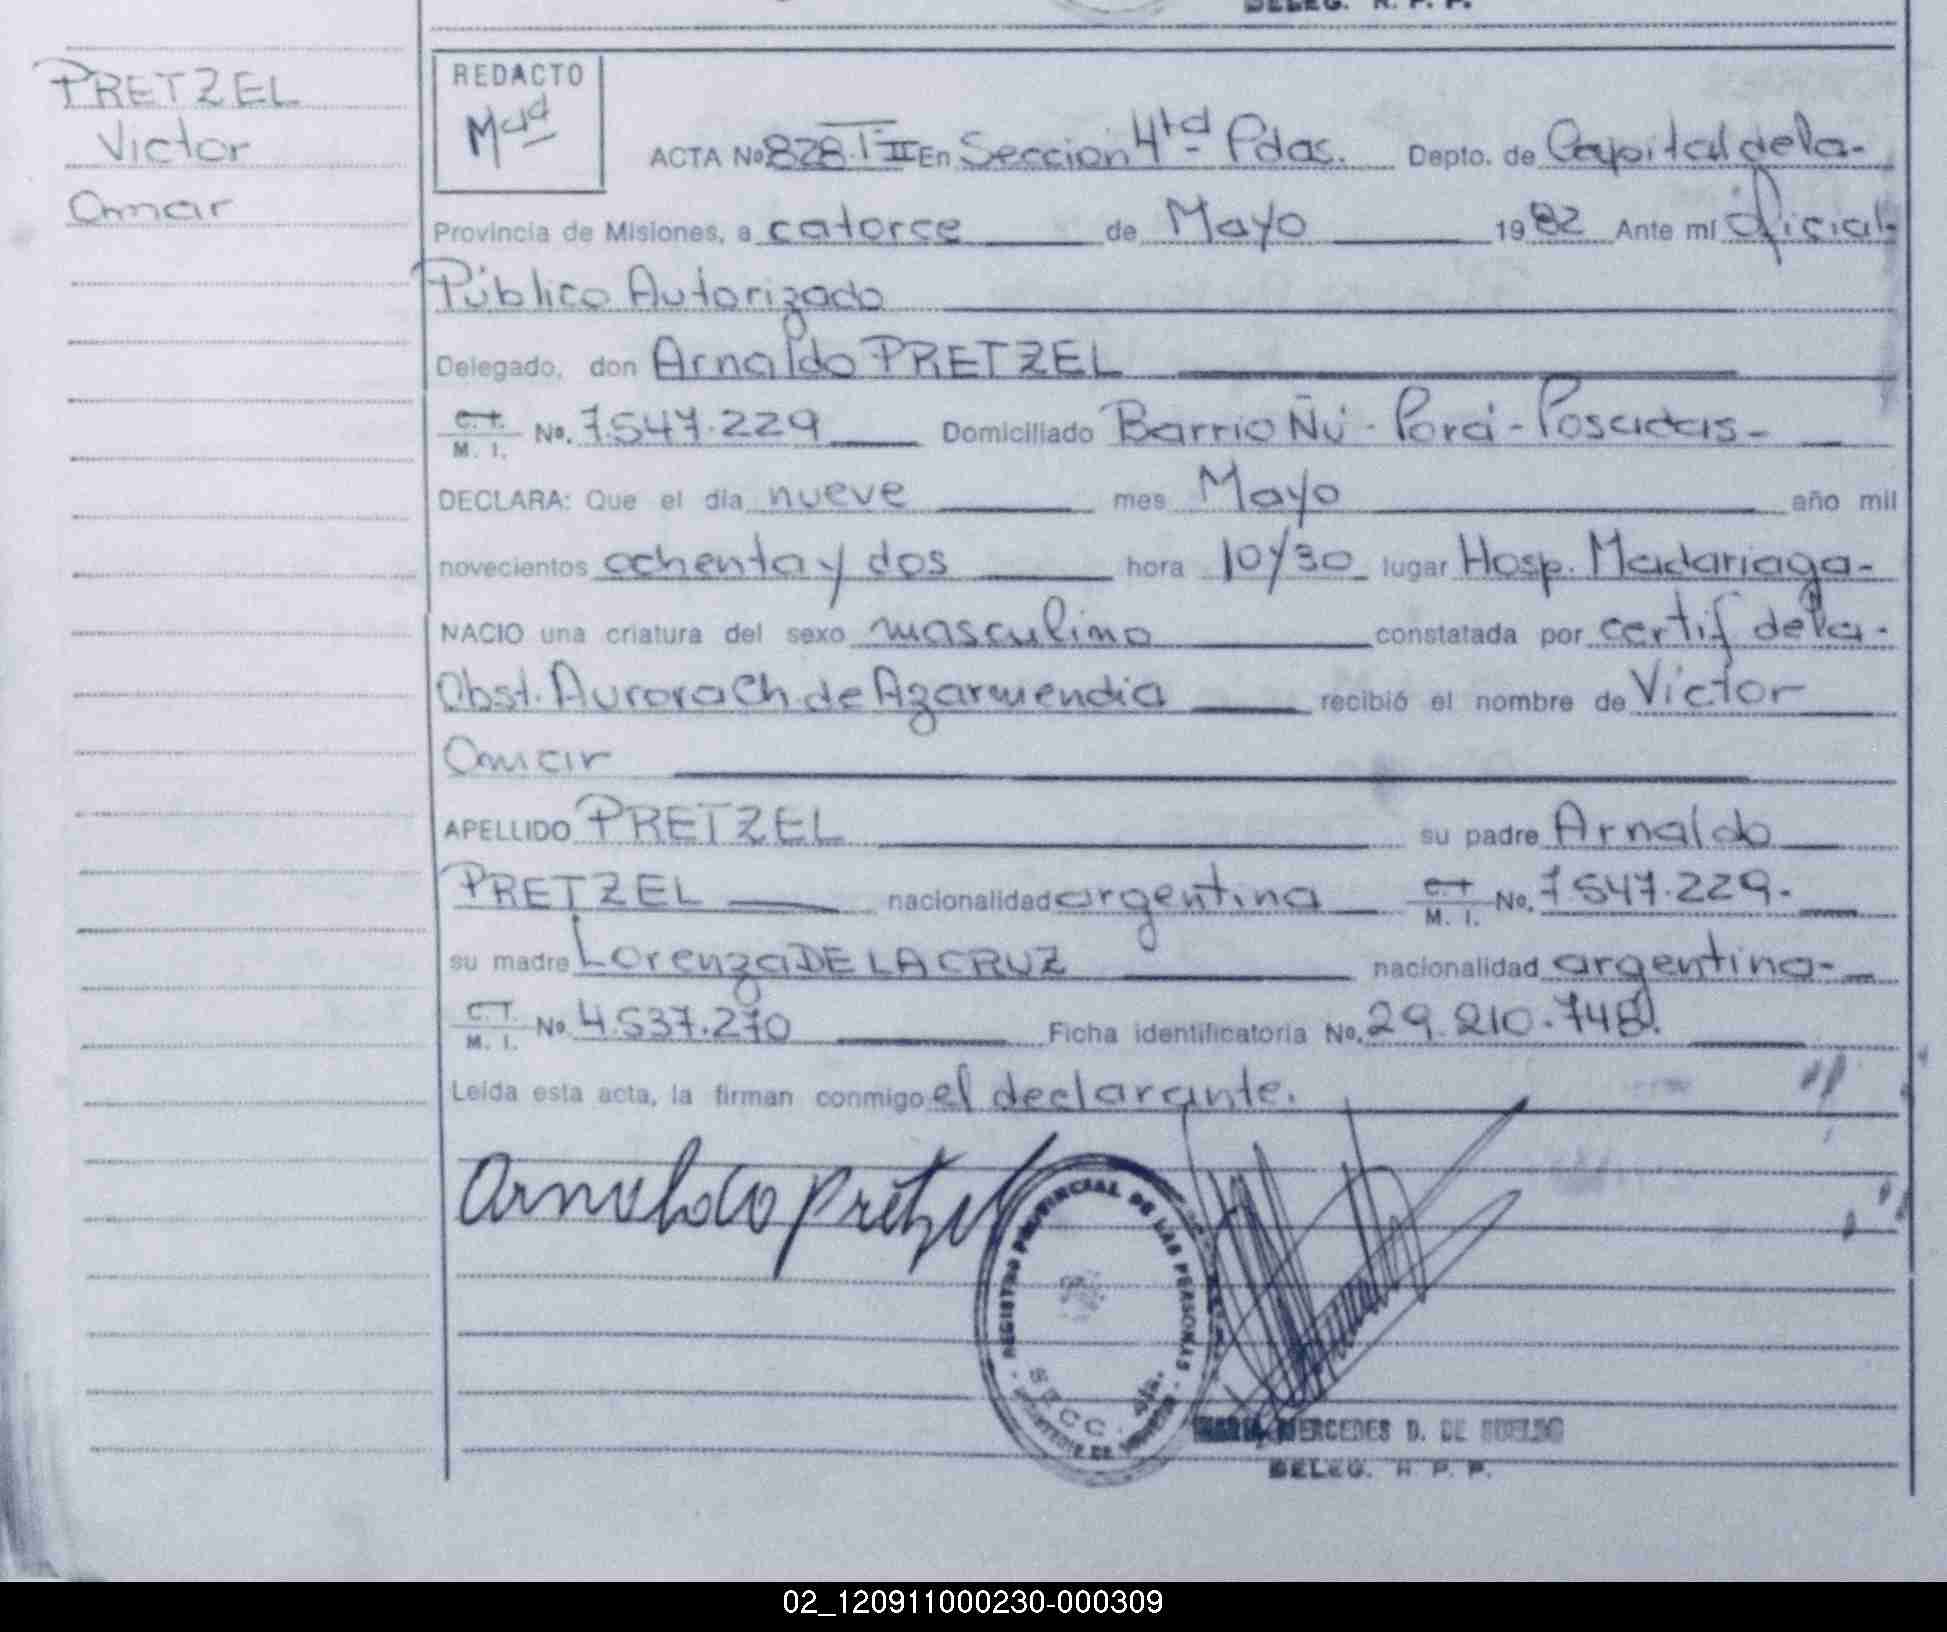 DELEG. R. P. P.
PRETZEL
Victor
Omar
REDACTO
ACTA Nº 828.T-II En Seccion 4ta Pdas. Depto. de Capital de la-
Provincia de Misiones, a catorce de Mayo 1982 Ante mí Oficial-
Público Autorizado
Delegado, don Arnaldo PRETZEL
C.I. M. I. Nº. 7.547.229 Domiciliado Barrio Ñú-Porá-Posadas-
DECLARA: Que el día nueve mes Mayo año mil
novecientos ochenta y dos hora 10y30 lugar Hosp. Madariaga-
NACIO una criatura del sexo masculino constatada por certif de la-
Obst. Aurora Ch. de Azarmendia recibió el nombre de Victor
Omar
APELLIDO PRETZEL su padre Arnaldo
PRETZEL nacionalidad argentina C.I. M. I. Nº. 7547.229.
su madre Lorenza DE LA CRUZ nacionalidad argentina-
C.I. M. I. Nº. 4.537.270 Ficha identificatoria Nº. 29.210.748.
Leída esta acta, la firman conmigo el declarante.
Arnoldo Pretzel
REGISTRO PROVINCIAL DE LAS PERSONAS
SECC. 4ta.
MARIA MERCEDES D. DE SUELDO
DELEG. R. P. P.
02_120911000230-000309